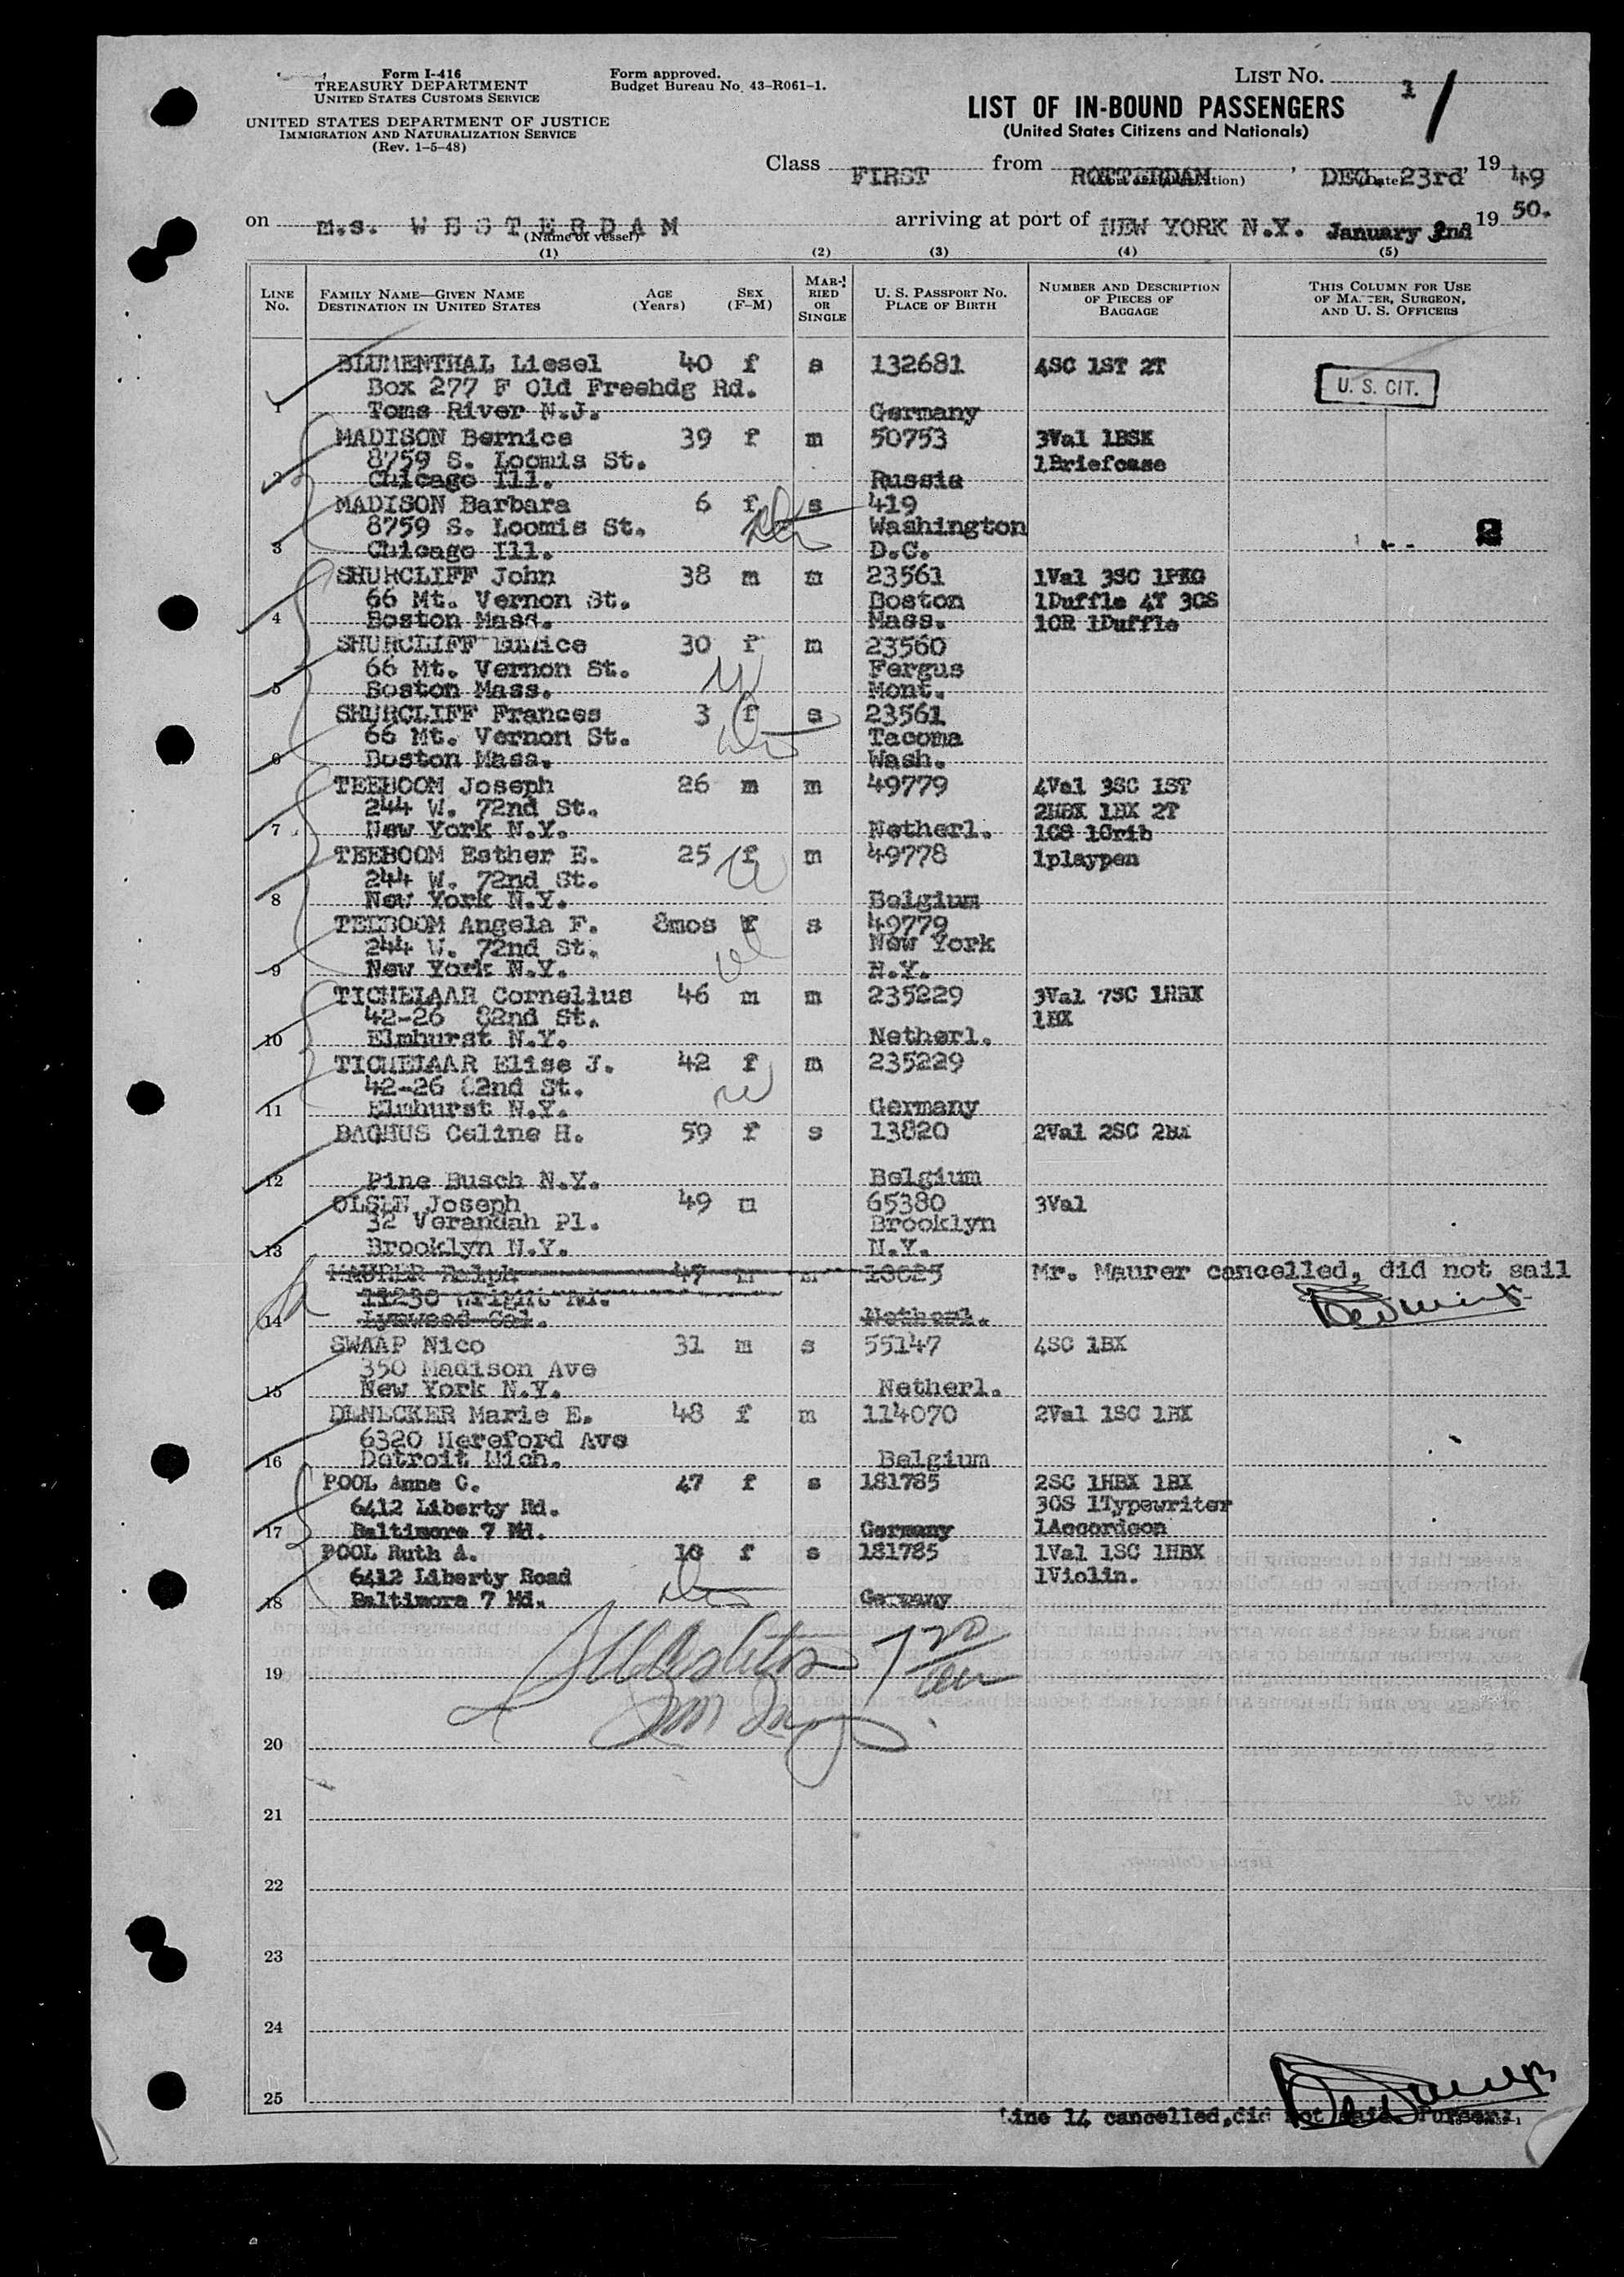 Form I-416
TREASURY DEPARTMENT
UNITED STATES CUSTOMS SERVICE
UNITED STATES DEPARTMENT OF JUSTICE
IMMIGRATION AND NATURALIZATION SERVICE
(Rev. 1-5-48)
Form approved.
Budget Bureau No. 43-R061-1.
LIST NO. 1
LIST OF IN-BOUND PASSENGERS
(United States Citizens and Nationals)
Class FIRST from ROTTERDAM, DEC. 23rd, 19 49
on m.s. WESTERDAM arriving at port of NEW YORK N.Y. January 2nd 19 50.
(Name of vessel)
(1) (2) (3) (4) (5)
LINE NO. FAMILY NAME—GIVEN NAME DESTINATION IN UNITED STATES AGE (Years) SEX (F-M) MARRIED OR SINGLE U. S. PASSPORT NO. PLACE OF BIRTH NUMBER AND DESCRIPTION OF PIECES OF BAGGAGE THIS COLUMN FOR USE OF MASTER, SURGEON, AND U. S. OFFICERS
BLUMENTHAL Liesel 40 f s 132681 4SC 1ST 2T
Box 277 F Old Freehdg Rd. U. S. CIT.
1 Toms River N.J. Germany
MADISON Bernice 39 f m 50753 3Val 1BSK
8759 S. Loomis St. 1Briefcase
2 Chicago Ill. Russia
MADISON Barbara 6 f s 419
8759 S. Loomis St. Washington
3 Chicago Ill. D.C.
SHURCLIFF John 38 m m 23561 1Val 3SC 1PKG
66 Mt. Vernon St. Boston 1Duffle 4T 3CS
4 Boston Mass. Mass. 1CR 1Duffle
SHURCLIFF Eunice 30 f m 23560
66 Mt. Vernon St. Fergus
5 Boston Mass. Mont.
SHURCLIFF Frances 3 f s 23561
66 Mt. Vernon St. Tacoma
6 Boston Mass. Wash.
TEEBOOM Joseph 26 m m 49779 4Val 3SC 1ST
244 W. 72nd St. 2HBX 1BX 2T
7 New York N.Y. Netherl. 1CS 1Crib
TEEBOOM Esther E. 25 f m 49778 1playpen
244 W. 72nd St.
8 New York N.Y. Belgium
TEEBOOM Angela F. 8mos f s 49779
244 W. 72nd St. New York
9 New York N.Y. N.Y.
TICHELAAR Cornelius 46 m m 235229 3Val 7SC 1HBX
42-26 82nd St. 1BX
10 Elmhurst N.Y. Netherl.
TICHELAAR Elise J. 42 f m 235229
42-26 82nd St.
11 Elmhurst N.Y. Germany
BAGHUS Celine H. 59 f s 13820 2Val 2SC 2BX
12 Pine Busch N.Y. Belgium
Joseph 49 m 65380 3Val
32 Verandah Pl. Brooklyn
13 Brooklyn N.Y. N.Y.
MAURER Ralph 47 m m 13025 Mr. Maurer cancelled, did not sail
11230 Wright Rd.
14 Lynwood Cal. Netherl.
SWAAP Nico 31 m s 55147 4SC 1BX
350 Madison Ave
15 New York N.Y. Netherl.
DENECKER Marie E. 48 f m 114070 2Val 1SC 1BX
6320 Hereford Ave
16 Detroit Mich. Belgium
POOL Anne C. 47 f s 181785 2SC 1HBX 1BX
6412 Liberty Rd. 3CS 1Typewriter
17 Baltimore 7 Md. Germany 1Accordeon
POOL Ruth A. 10 f s 181785 1Val 1SC 1HBX
6412 Liberty Road 1Violin.
18 Baltimore 7 Md. Germany
19
20
21
22
23
24
25
Line 14 cancelled, did not sail